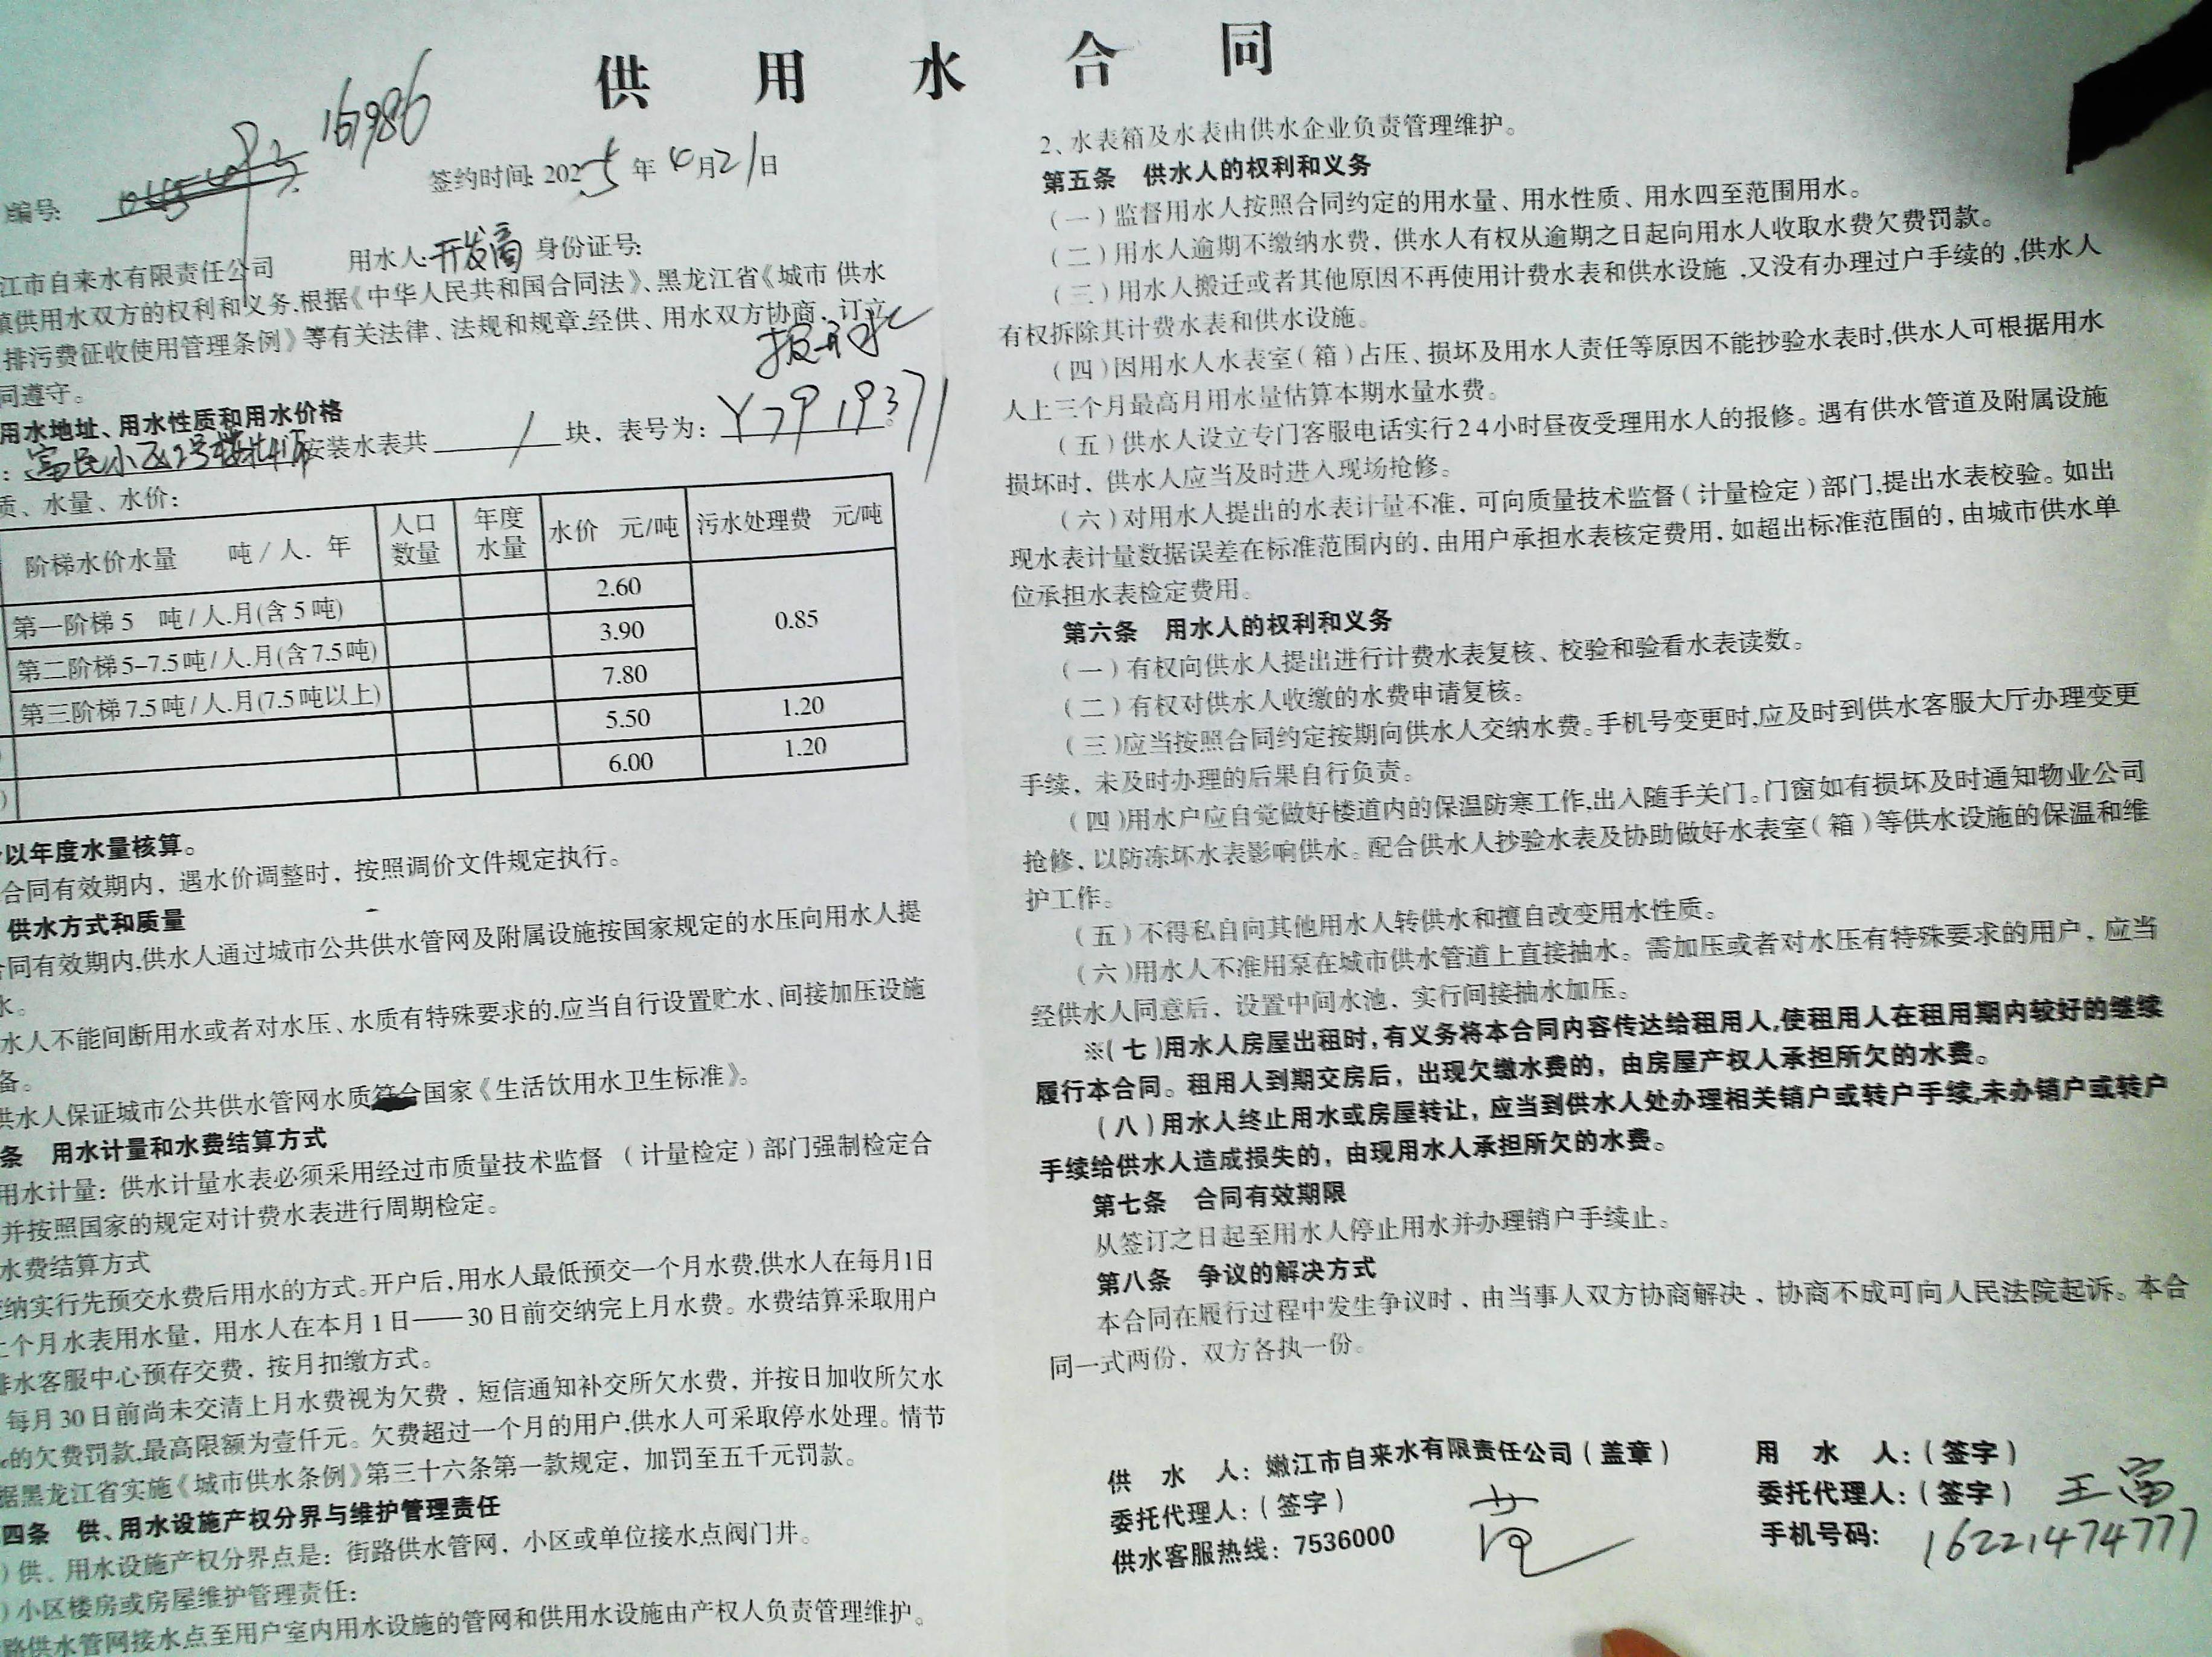 供用水合同
16986
编号:
签约时间: 2025年4月21日
江市自来水有限责任公司 用水人:开发商 身份证号:
供用水双方的权利和义务,根据《中华人民共和国合同法》、黑龙江省《城市 供水
排污费征收使用管理条例》等有关法律、法规和规章,经供、用水双方协商,订立
同遵守。
用水地址、用水性质和用水价格
: 富民小区2号楼 安装水表共 1 块, 表号为:
质、水量、水价:
阶梯水价水量 吨/人.年 人口数量 年度水量 水价 元/吨 污水处理费 元/吨
第一阶梯5 吨/人.月(含5吨) 2.60 0.85
第二阶梯5-7.5吨/人.月(含7.5吨) 3.90
第三阶梯7.5吨/人.月(7.5吨以上) 7.80
5.50 1.20
) 6.00 1.20
以年度水量核算。
合同有效期内，遇水价调整时，按照调价文件规定执行。
供水方式和质量
同有效期内,供水人通过城市公共供水管网及附属设施按国家规定的水压向用水人提
水。
水人不能间断用水或者对水压、水质有特殊要求的,应当自行设置贮水、间接加压设施
备。
供水人保证城市公共供水管网水质符合国家《生活饮用水卫生标准》。
条 用水计量和水费结算方式
用水计量：供水计量水表必须采用经过市质量技术监督 (计量检定)部门强制检定合
并按照国家的规定对计费水表进行周期检定。
水费结算方式
纳实行先预交水费后用水的方式。开户后,用水人最低预交一个月水费,供水人在每月1日
个月水表用水量，用水人在本月1日——30日前交纳完上月水费。水费结算采取用户
排水客服中心预存交费，按月扣缴方式。
每月30日前尚未交清上月水费视为欠费，短信通知补交所欠水费，并按日加收所欠水
的欠费罚款,最高限额为壹仟元。欠费超过一个月的用户,供水人可采取停水处理。情节
据黑龙江省实施《城市供水条例》第三十六条第一款规定，加罚至五千元罚款。
四条 供、用水设施产权分界与维护管理责任
)供、用水设施产权分界点是：街路供水管网，小区或单位接水点阀门井。
)小区楼房或房屋维护管理责任:
路供水管网接水点至用户室内用水设施的管网和供用水设施由产权人负责管理维护。
2、水表箱及水表由供水企业负责管理维护。
第五条 供水人的权利和义务
(一)监督用水人按照合同约定的用水量、用水性质、用水四至范围用水。
(二)用水人逾期不缴纳水费，供水人有权从逾期之日起向用水人收取水费欠费罚款。
(三)用水人搬迁或者其他原因不再使用计费水表和供水设施,又没有办理过户手续的,供水人
有权拆除其计费水表和供水设施。
(四)因用水人水表室(箱)占压、损坏及用水人责任等原因不能抄验水表时,供水人可根据用水
人上三个月最高月用水量估算本期水量水费。
(五)供水人设立专门客服电话实行24小时昼夜受理用水人的报修。遇有供水管道及附属设施
损坏时，供水人应当及时进入现场抢修。
(六)对用水人提出的水表计量不准，可向质量技术监督(计量检定)部门,提出水表校验。如出
现水表计量数据误差在标准范围内的，由用户承担水表核定费用，如超出标准范围的，由城市供水单
位承担水表检定费用。
第六条 用水人的权利和义务
(一)有权向供水人提出进行计费水表复核、校验和验看水表读数。
(二)有权对供水人收缴的水费申请复核。
(三)应当按照合同约定按期向供水人交纳水费。手机号变更时,应及时到供水客服大厅办理变更
手续，未及时办理的后果自行负责。
(四)用水户应自觉做好楼道内的保温防寒工作,出入随手关门。门窗如有损坏及时通知物业公司
抢修，以防冻坏水表影响供水。配合供水人抄验水表及协助做好水表室(箱)等供水设施的保温和维
护工作。
(五)不得私自向其他用水人转供水和擅自改变用水性质。
(六)用水人不准用泵在城市供水管道上直接抽水。需加压或者对水压有特殊要求的用户，应当
经供水人同意后，设置中间水池，实行间接抽水加压。
※(七)用水人房屋出租时,有义务将本合同内容传达给租用人,使租用人在租用期内较好的继续
履行本合同。租用人到期交房后，出现欠缴水费的，由房屋产权人承担所欠的水费。
(八)用水人终止用水或房屋转让，应当到供水人处办理相关销户或转户手续,未办销户或转户
手续给供水人造成损失的，由现用水人承担所欠的水费。
第七条 合同有效期限
从签订之日起至用水人停止用水并办理销户手续止。
第八条 争议的解决方式
本合同在履行过程中发生争议时，由当事人双方协商解决，协商不成可向人民法院起诉。本合
同一式两份，双方各执一份。
供水人：嫩江市自来水有限责任公司(盖章)
委托代理人:(签字)
供水客服热线：7536000
用水人:(签字)
委托代理人:(签字) 王富
手机号码: 16221474777